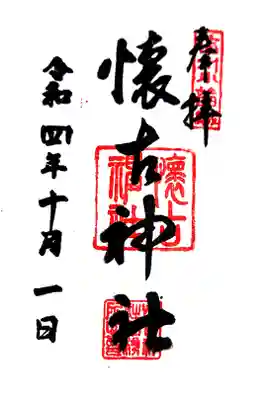 奉拝
懐古神社
令和四年十月一日
懐古
神社